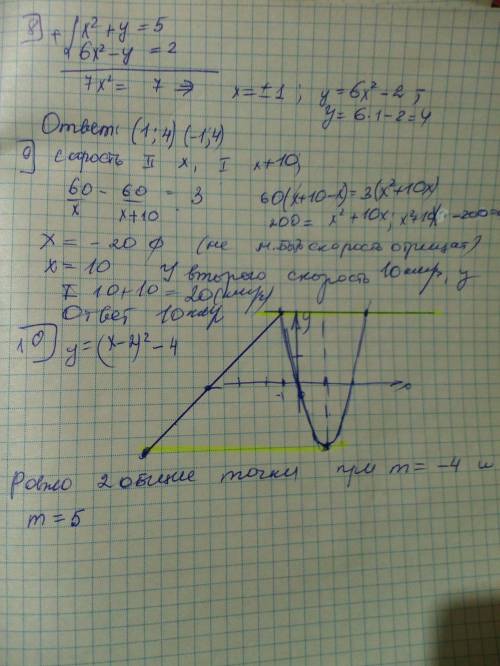 8) + { x² + y = 5
6x² - y = 2
7x² = 7 ⇒ x = ±1; y = 6x² - 2;
y = 6·1 - 2 = 4
Ответ: (1; 4) (-1; 4)
9) скорость II x, I x+10,
60/x - 60/(x+10) = 3 60(x+10-x) = 3(x²+10x)
200 = x² + 10x; x² + 10x - 200 =
X = -20 ф (не м. быть скорость отрицат)
X = 10 У второго скорость 10 км/ч, у
I 10+10 = 20 (км/ч)
Ответ 10 км/ч
10) y = (x-2)² - 4
y
-1
x
Ровно 2 общие точки при m = -4 и
m = 5